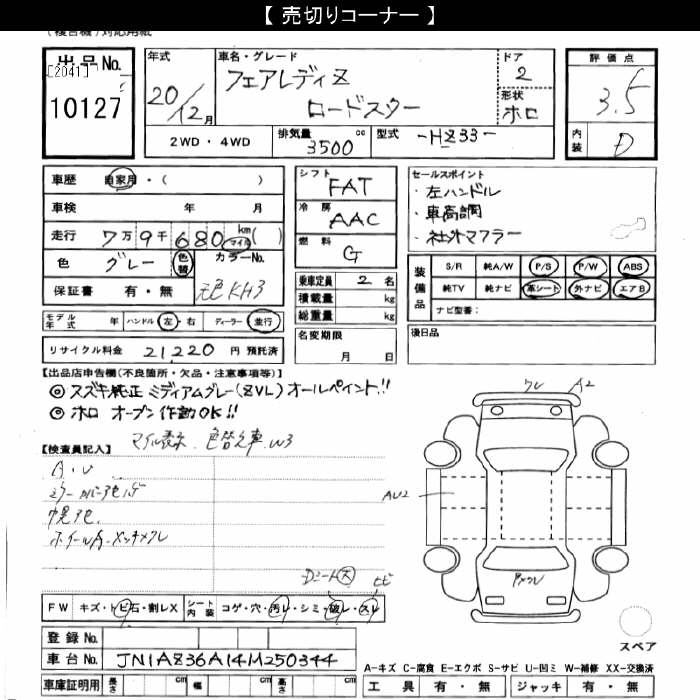 【 売切りコーナー 】
出品No.
[2041]
10127
年式
20/12月
車名・グレード
フェアレディZ
ロードスター
ドア
2
形状
ホロ
評価点
3.5
内装
D
2WD・4WD
排気量
3500
cc
型式
-HZ33-
車歴 自家用・( )
車検 年 月
走行 7万9千680 km マイル ( )
色 グレー 色替 カラーNo.
保証書 有・無 元色KH3
モデル年式 年 ハンドル 左・右 ディーラー・並行
リサイクル料金 21,220 円 預託済
シフト
FAT
冷房
AAC
燃料
G
乗車定員 2 名
積載量 kg
総重量 kg
名変期限
月 日
セールスポイント
・左ハンドル
・車高調
・社外マフラー
装備品
S/R 純A/W P/S P/W ABS
純TV 純ナビ 革シート 外ナビ エアB
ナビ型番:
後日品
【出品店申告欄(不良箇所・欠品・注意事項等)】
◎スズキ純正 ミディアムグレー(ZVL)オールペイント!!
◎ホロ オープン作動OK!!
【検査員記入】
マイル表示 色替え車 W3
A・U
ホイールA・メッキハクレ
Dシート大
ヒビ
ワレ A2
AU2
FW キズ・トビ石・割レX
シート内装 コゲ・穴・汚レ・シミ・破レ・スレ
登録No.
車台No. JN1AZ36A14M250344
車庫証明用 長さ cm 幅 cm 高さ cm
スペア
A-キズ C-腐食 E-エクボ S-サビ U-凹ミ W-補修 XX-交換済
工具 有・無 ジャッキ 有・無